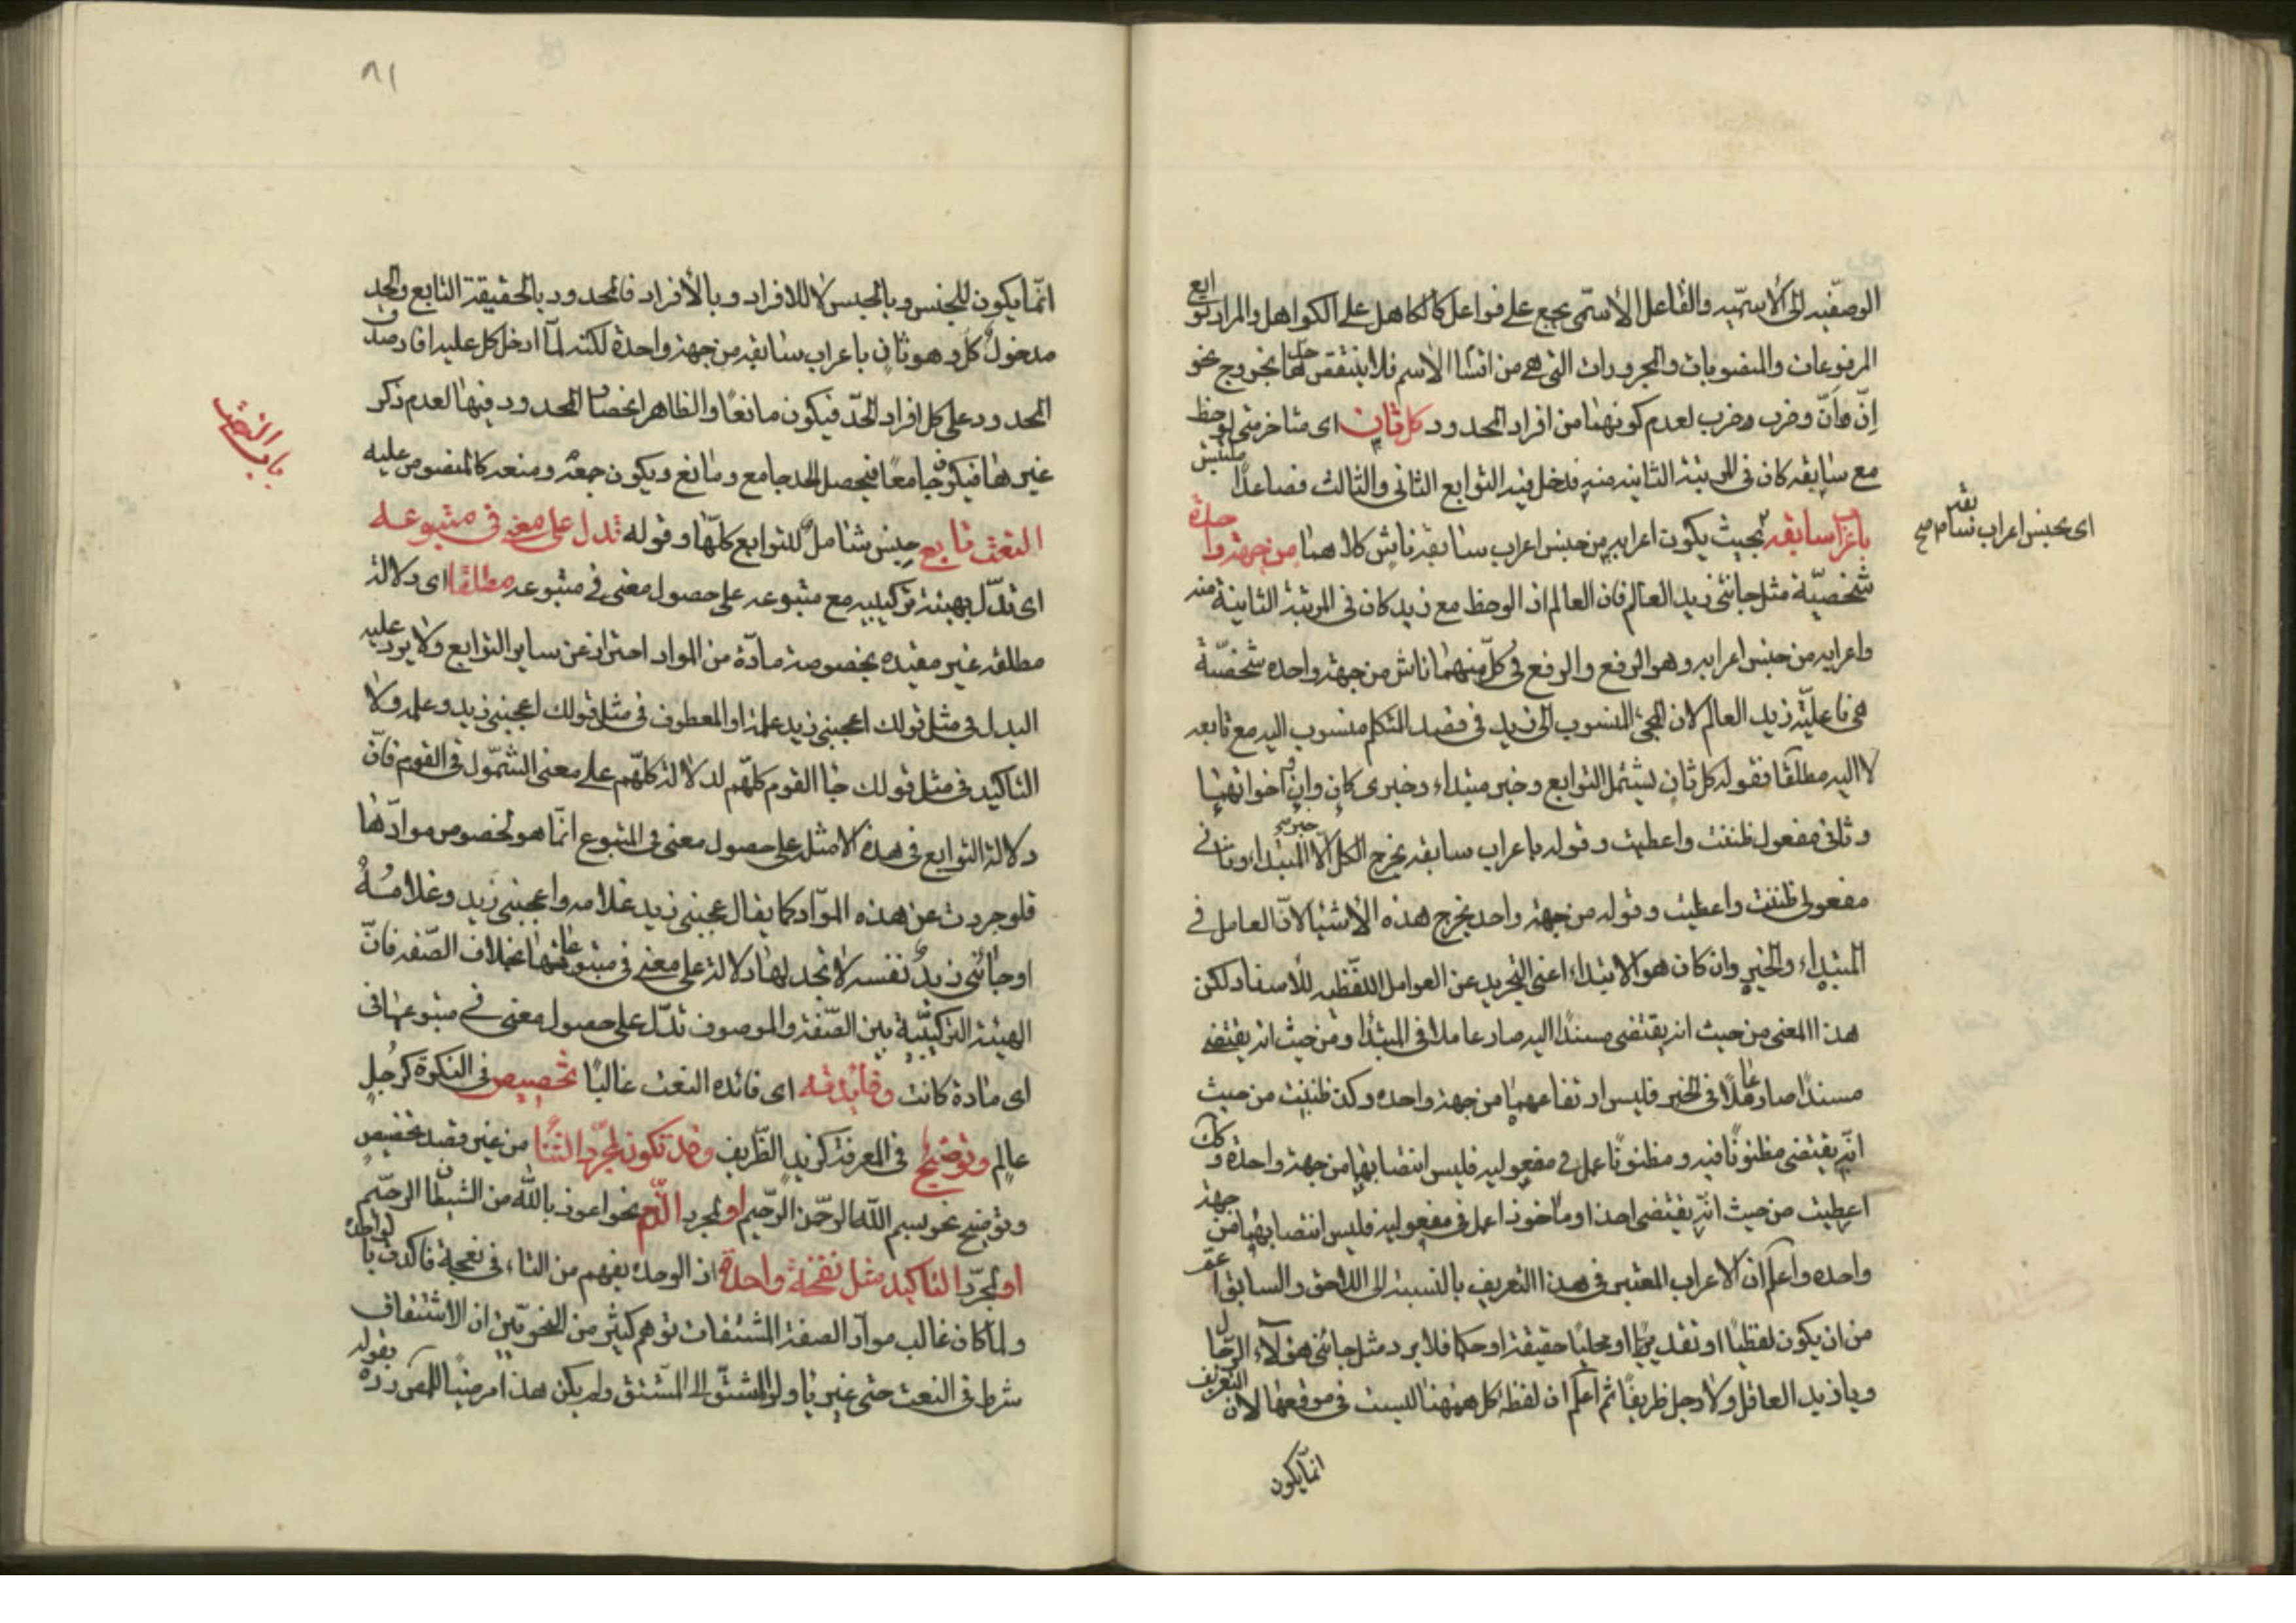 الوصفية الى الاسمية والفاعل الاسمى يجمع على فواعل كالكاهل على الكواهل والمراد توابع
المرفوعات والمنصوبات والمجرورات التى هى من اقسام الاسم فلا ينتقض حدها بخروج نحو
اِنّ وانّ وضرب وضرب لعدم كونهما من افراد المحدود كل ثانٍ اى متاخر متى لوحظ
مع سابقه كان فى المرتبة الثانية منه فدخل فيه التوابع الثانى والثالث فصاعدًا ملتبس
باعراب سابقه بحيث يكون اعرابه من جنس اعراب سابقه ناش كلاهما من جهة واحدة
شخصيّة مثل جائنى زيد العالم فان العالم اذا لوحظ مع زيد كان فى المرتبة الثانية منه
واعرابه من جنس اعرابه وهو الرفع والرفع فى كلّ منهما ناش من جهة واحده شخصيّة
هى فاعليّة زيد العالم لان المجئ المنسوب الى زيد فى قصد المتكلم منسوب اليه مع تابعه
لا اليه مطلقًا فقوله كل ثانٍ يشتمل التوابع وخبر مبتداء وخبرى كان وان واخواتهما
وثانى مفعول ظننت واعطيت وقوله باعراب سابقه يخرج الكل الّا خبر المبتداء وثانى
مفعولى ظننت واعطيت وقوله من جهة واحد يخرج هذه الاشيا لانّ العامل فى
المبتداء والخبر وان كان هو الابتداء اعنى التجريد عن العوامل اللفظيه للاسناد لكن
هذا المعنى من حيث انه يقتضى مسندًا اليه صار عاملا فى المبتدا ومن حيث انه يقتضى
مسندًا صار عاملًا فى الخبر فليس ارتفاعهما من جهة واحده وكذ ظننت من حيث
انّه يقتضى مظنونًا فيه ومظنونًا عمل فى مفعوليه فليس انتصابهما من جهة واحدة وكك
اعطيت من حيث انّه يقتضى اخذا وماخوذا عمل فى مفعوليه فليس انتصابهما من جهة
واحده واعلم ان الاعراب المعتبر فى هذا التعريف بالنسبة الى اللاحق والسابق اعم
من ان يكون لفظيًا او تقديريًا او محليًا حقيقة او حكما فلا يرد مثل جائنى هؤلاء الرجال
ويا زيد العاقل ولا رجل ظريفًا ثم اعلم ان لفظة كل ههنا ليست فى موقعها لان التعريف
انّما يكون
اى بجنس اعراب سابقه صح
٨١
انّما يكون للجنس وبالجنس لا للافراد وبالافراد فالمحدود بالحقيقة التابع والحد
مدخول كل وهو ثانٍ باعراب سابقه من جهة واحدة لكنه لمّا ادخل كل عليه افاد صدق
المحدود على كل افراد الحدّ فيكون مانعًا والظاهر انحصار المحدود فيها لعدم ذكر
غيرها فيكون جامعًا فيحصل الحد جامع ومانع ويكون جمعه ومنعه كالمنصوص عليه
النعت تابع جنس شامل للتوابع كلّها وقوله تدل على معنى فى متبوعه
اى تدّل بهيئة تركيبيه مع متبوعه على حصول معنى فى متبوعه مطلقا اى دلالة
مطلقه غير مقيده بخصوصة مادّة من المواد احتراز عن ساير التوابع ولا يرد عليه
البدل فى مثل قولك اعجبنى زيد علمه او المعطوف فى مثل قولك اعجبنى زيد وعلمه ولا
التاكيد فى مثل قولك جا القوم كلهم لدلالة كلّهم على معنى الشمّول فى القوم فانّ
دلالة التوابع فى هذه الامثله على حصول معنى فى المتبوع انّما هو لخصوص موادّها
فلو جردت عن هذه الموّاد كما يقال عجبنى زيد غلامه واعجبنى زيد وغلامُهُ
او جائنى زيد نفسه لا تجد لها دلالة على معنى فى متبوعاتها بخلاف الصّفه فانّ
الهيئة التركيبّية بين الصّفة والموصوف تدّل على حصول معنى فى متبوعها فى
اى مادة كانت وفائدته اى فائده النعت غالبًا تخصيص فى النكرة كرجلٍ
عالمٍ وتوضيح فى المعرفة كزيدٍ الظّريف وقد تكون لمجرّد الثنا من غير قصد تخصيص
وتوضيح نحو بسم الله الرحمن الرّحيم او لمجرد الذم نحو اعوذ بالله من الشيطان الرجيم
او لمجرّد التاكيد مثل نفخة واحدة اذ الوحدة يفهم من التاء فى نفخة فاكدت بالواحدة
ولما كان غالب موادّ الصفة المشتقات توهم كثير من النحويّين ان الاشتقاق
شرط فى النعت حتى غير يا ولو المشتق الى المشتق ولم يكن هذا مرضيًا للمص ردّه بقوله
باب النعت